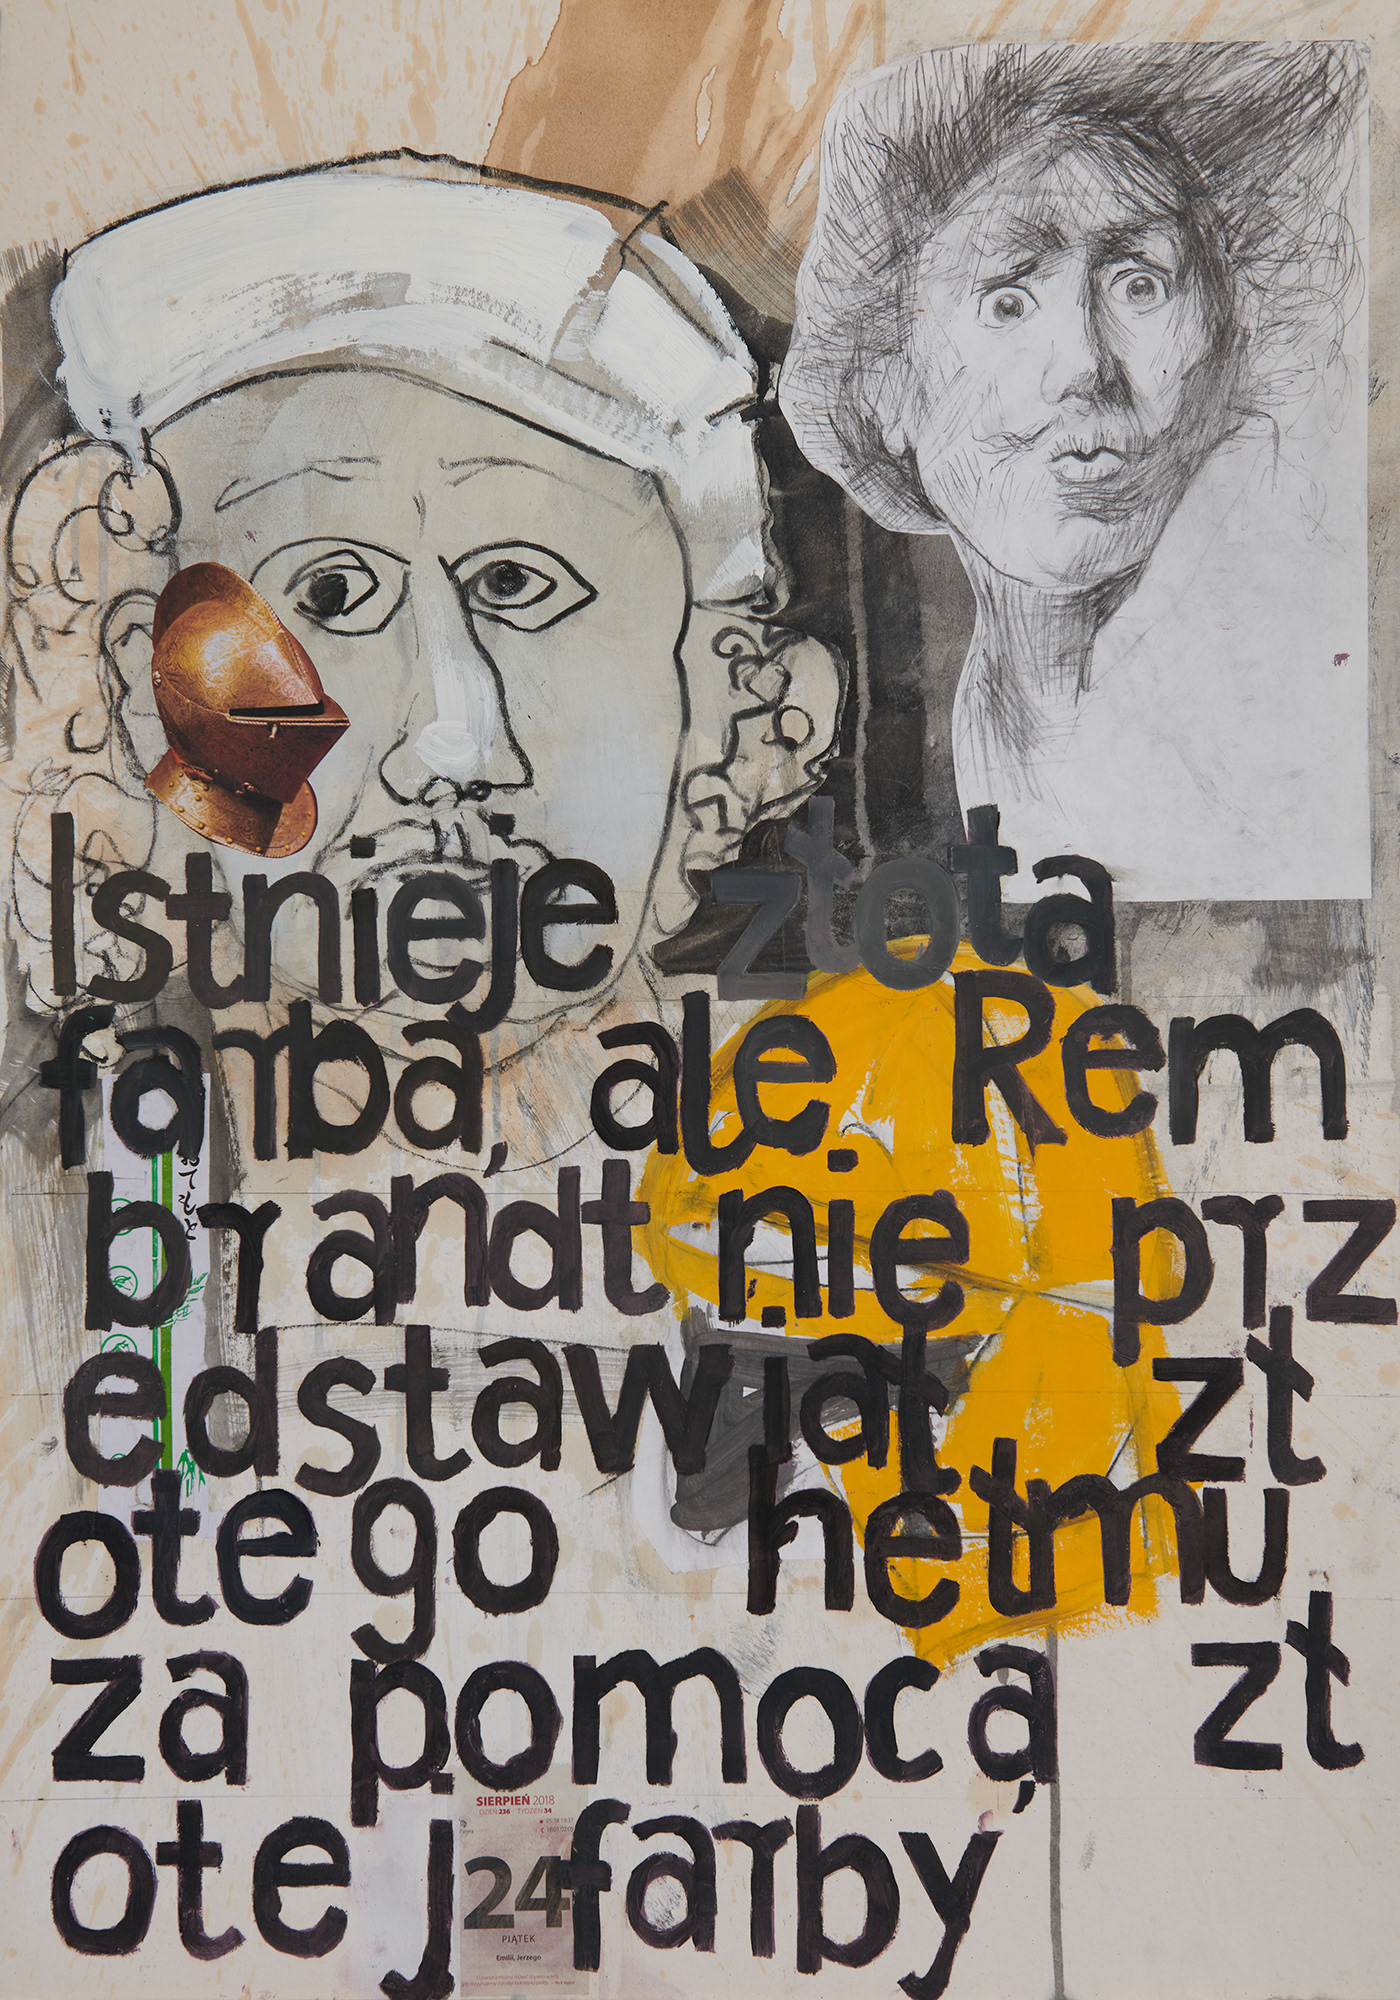 Istnieje złota
farba, ale Rem
brandt nie prz
edstawiał zł
otego hełmu
za pomocą zł
otej farby
SIERPIEŃ 2018
DZIEŃ 236 TYDZIEŃ 34
24
PIĄTEK
Emilii, Jerzego